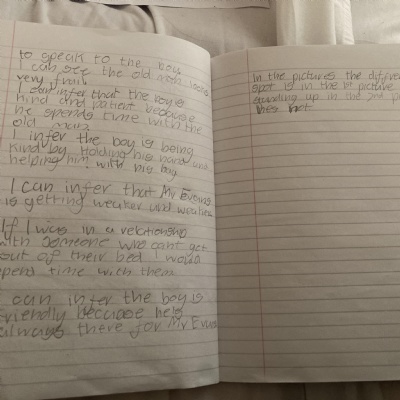 to speak to the boy
I can see the old man looks
very frail
I can infer that the boy is
kind and patient because
he spends time with the
old man
I infer the boy is being
kind by holding his hand and
helping him with his bag
I can infer that Mr Evans
is getting weaker and weaker
If I was in a relationship
with someone who cant get
out of their bed I would
spend time with them
I can infer the boy is
friendly because he is
always there for Mr Evans
In the pictures the differe
spot is in the 1st picture
standing up in the 2nd p
hes not